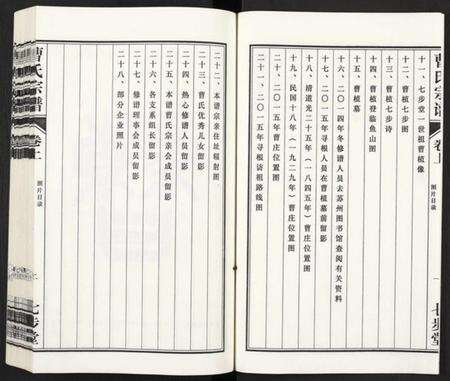 曹氏宗譜
卷上
图片目录
一
七步堂
十一、七步堂一世祖曹植像
十二、曹植七步图
十三、曹植七步诗
十四、曹植登临鱼山图
十五、曹植墓
十六、二〇一四年冬修谱人员去苏州图书馆查阅有关资料
十七、二〇一五年寻根人员在曹植墓前留影
十八、清道光二十五年（一八四五年）曹庄位置图
十九、民国十八年（一九二九年）曹庄位置图
二十、二〇一五年曹庄位置图
二十一、二〇一五年寻根访祖路线图
二十二、本谱宗亲住址辐射图
二十三、曹氏优秀儿女留影
二十四、热心修谱人员留影
二十五、本谱曹氏宗亲会成员留影
二十六、各支系组长留影
二十七、修谱理事会成员留影
二十八、部分企业照片
曹氏宗譜
卷上
图片目录
七步堂